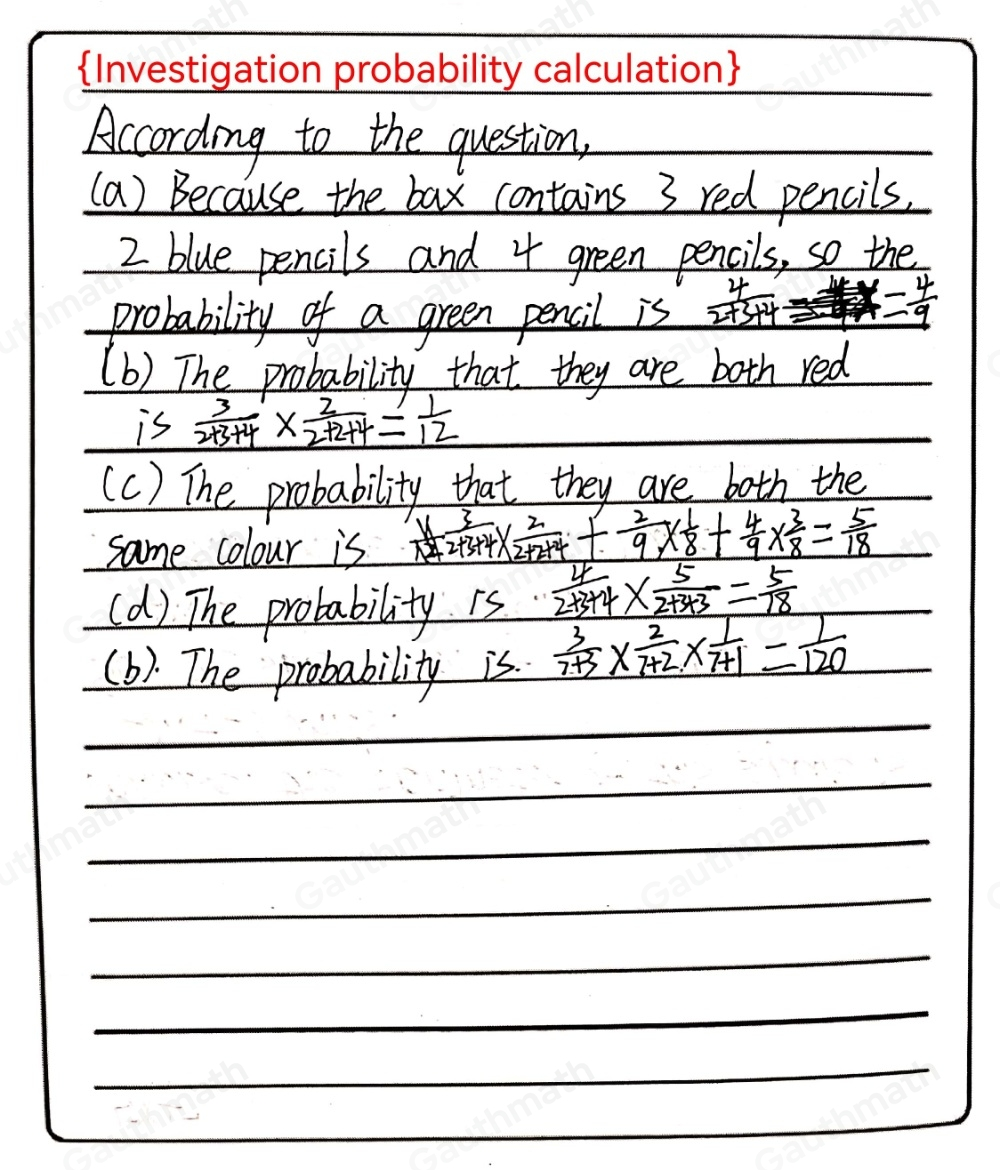 {Investigation probability calculation}
According to the question,
(a) Because the bax contains 3 red pencils,
2 blue pencils and 4 green pencils, so the
probability of a green pencil is 4/(2+3+4) = 4/9
(b) The probability that they are both red
is 3/(2+3+4) × 2/(2+2+4) = 1/12
(c) The probability that they are both the
same colour is 3/(2+3+4) × 2/(2+2+4) + 2/9 × 1/8 + 4/9 × 3/8 = 5/18
(d) The probability is 4/(2+3+4) × 5/(2+3+3) = 5/18
(b). The probability is. 3/(7+3) × 2/(7+2) × 1/(7+1) = 1/120
Gauthmath